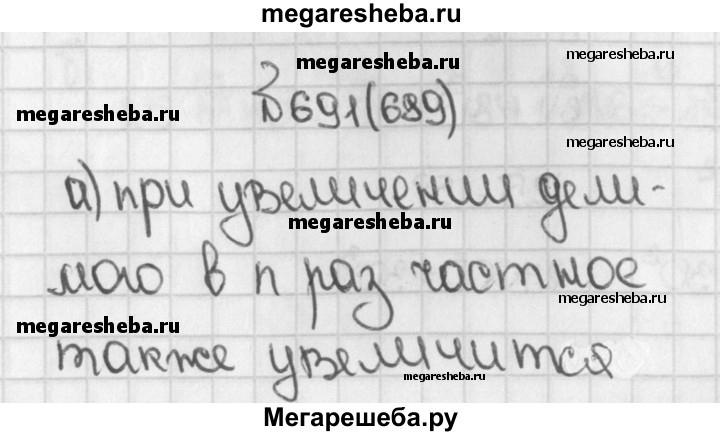 megaresheba.ru
megaresheba.ru
megaresheba.ru
megaresheba.ru
№691(689)
megaresheba.ru
а) при увеличении дели-
megaresheba.ru
мого в n раз частное
megaresheba.ru
megaresheba.ru
также увеличится
megaresheba.ru
Мегарешеба.ру